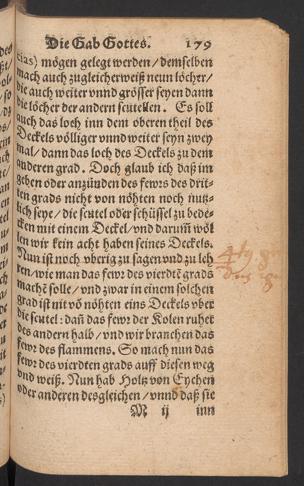 Die Gab Gottes. 179
cias) mögen gelegt werden / demselben
mach auch zugleicherweiß neun löcher /
die auch weiter vnnd grösser seyen dann
die löcher der andern scutellen. Es soll
auch das loch inn dem oberen theil des
Deckels völliger vnnd weiter seyn zwey
mal / dann das loch des Deckels zu dem
anderen grad. Doch glaub ich daß im
geben oder anzünden des fewrs des drit-
ten grads nicht von nöhten noch nutz-
lich seye / die scutel oder schüssel zu bede-
cken mit einem Deckel / vnd darum̃ wöl
len wir kein acht haben seines Deckels.
Nun ist noch vberig zu sagen vnd zu leh
ren / wie man das fewr des vierdtẽ grads
machẽ solle / vnd zwar in einem solchen
grad ist nit võ nöhten eins Deckels vber
die scutel: dañ das fewr der Kolen ruhet
des andern halb / vnd wir branchen das
fewr des flammens. So mach nun das
fewr des vierdten grads auff diesen weg
vnd weiß. Nun hab Holtz von Eychen
oder anderen desgleichen / vnnd daß sie
M ij inn